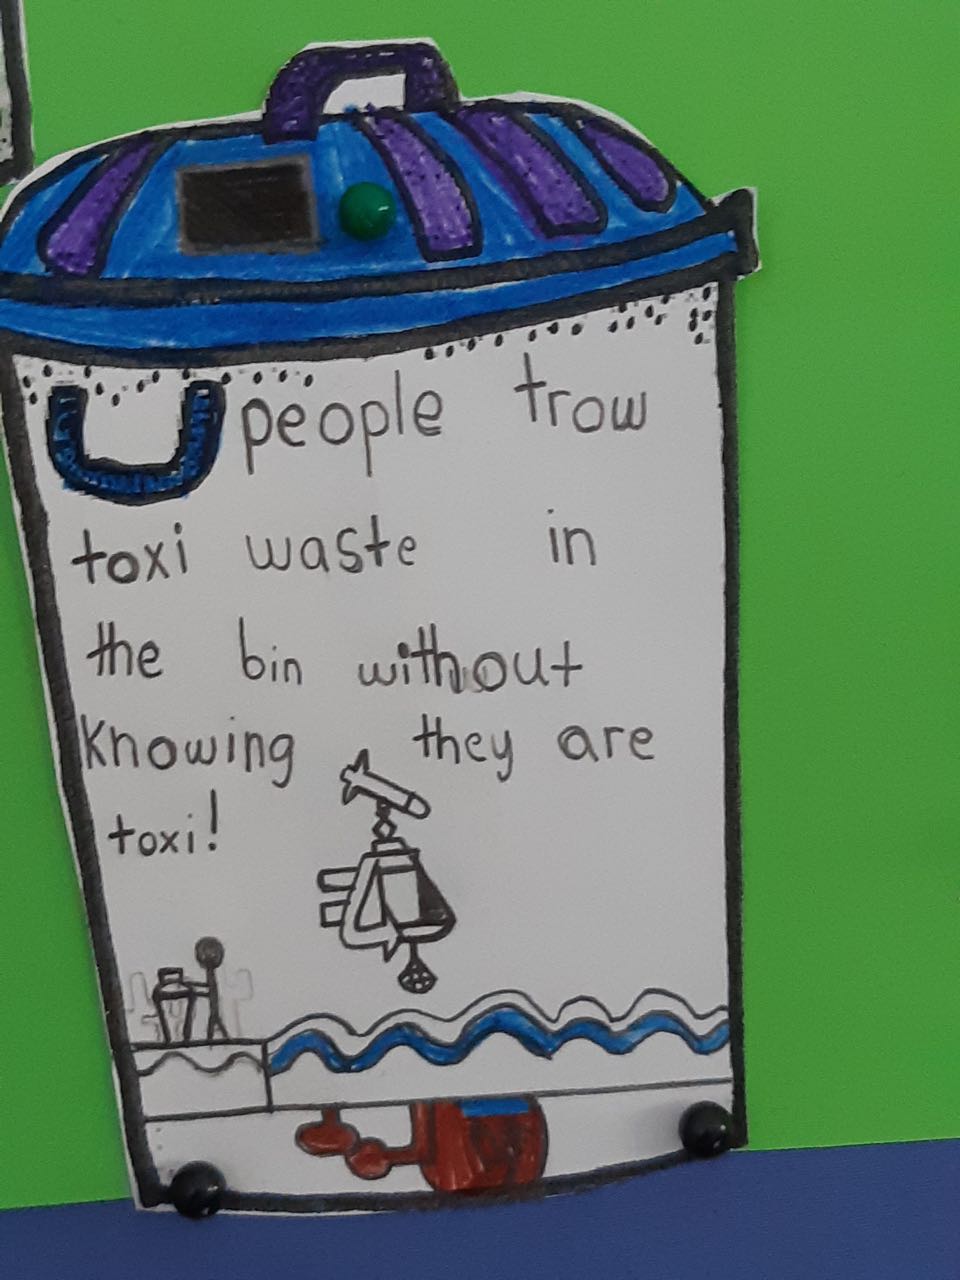 people trow
toxi waste in
the bin without
knowing they are
toxi!